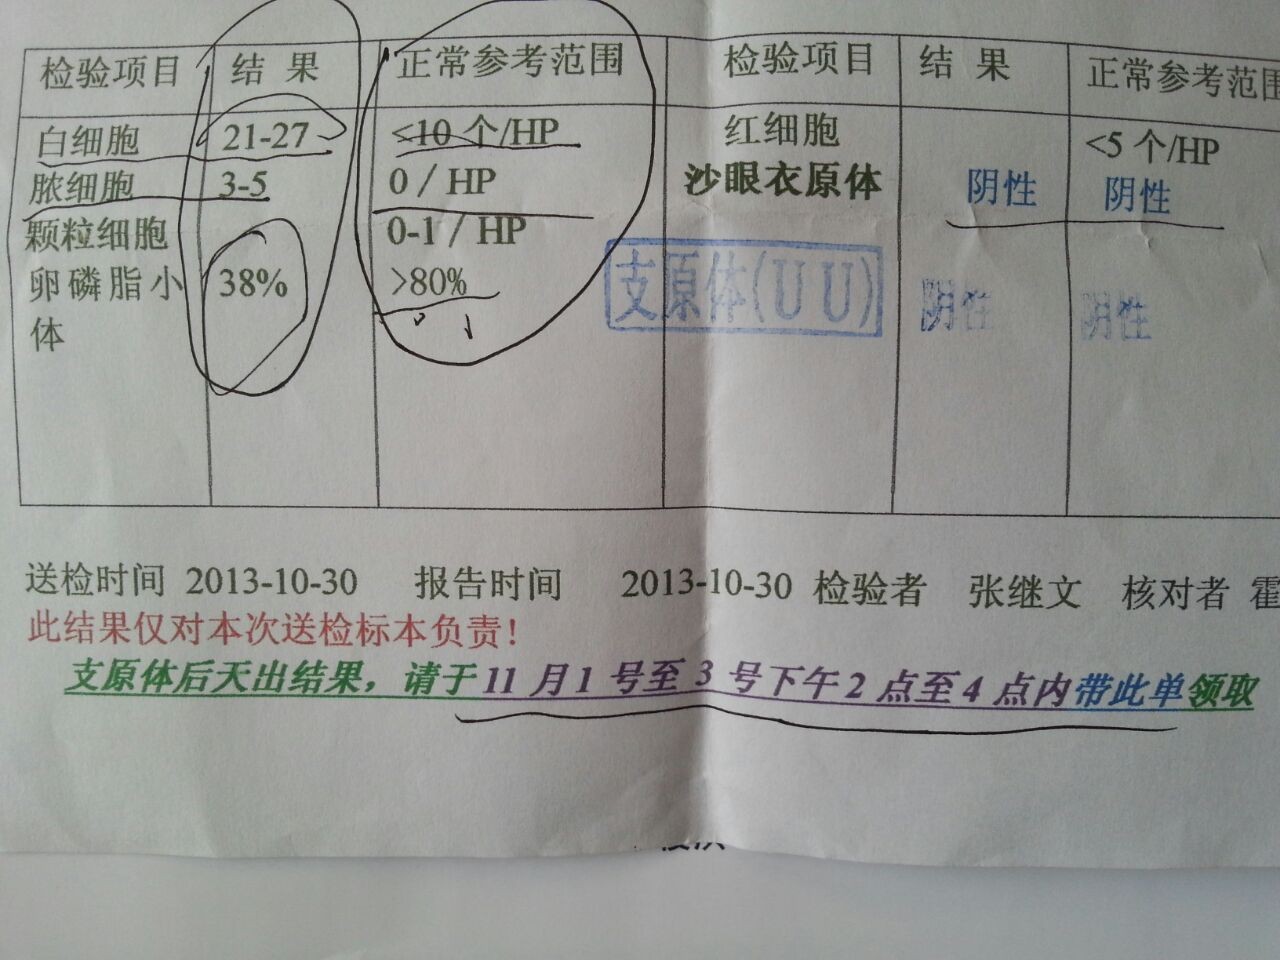 检验项目 结 果 正常参考范围 检验项目 结 果 正常参考范围
白细胞 21-27 <10 个/HP 红细胞 <5 个/HP
脓细胞 3-5 0 / HP 沙眼衣原体 阴性 阴性
颗粒细胞 0-1 / HP
卵磷脂小 38% >80% 支原体(UU) 阴性 阴性
体
送检时间 2013-10-30 报告时间 2013-10-30 检验者 张继文 核对者 霍
此结果仅对本次送检标本负责!
支原体后天出结果，请于11月1号至3号下午2点至4点内带此单领取